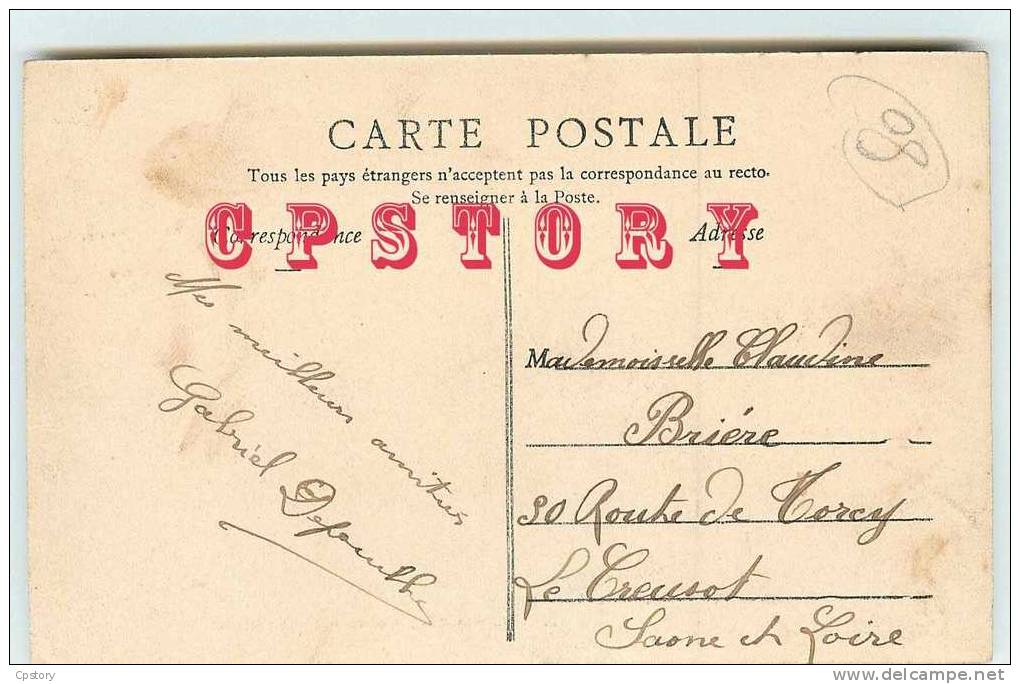 CARTE POSTALE
Tous les pays étrangers n'acceptent pas la correspondance au recto.
Se renseigner à la Poste.
CPSTORY
Correspondance
Adresse
Mes meilleurs amitiés
Gabriel
Mademoisselle Claudine
Briére
30 Route de Torcy
Le Creusot
Saone et Loire
Cpstory
www.delcampe.net